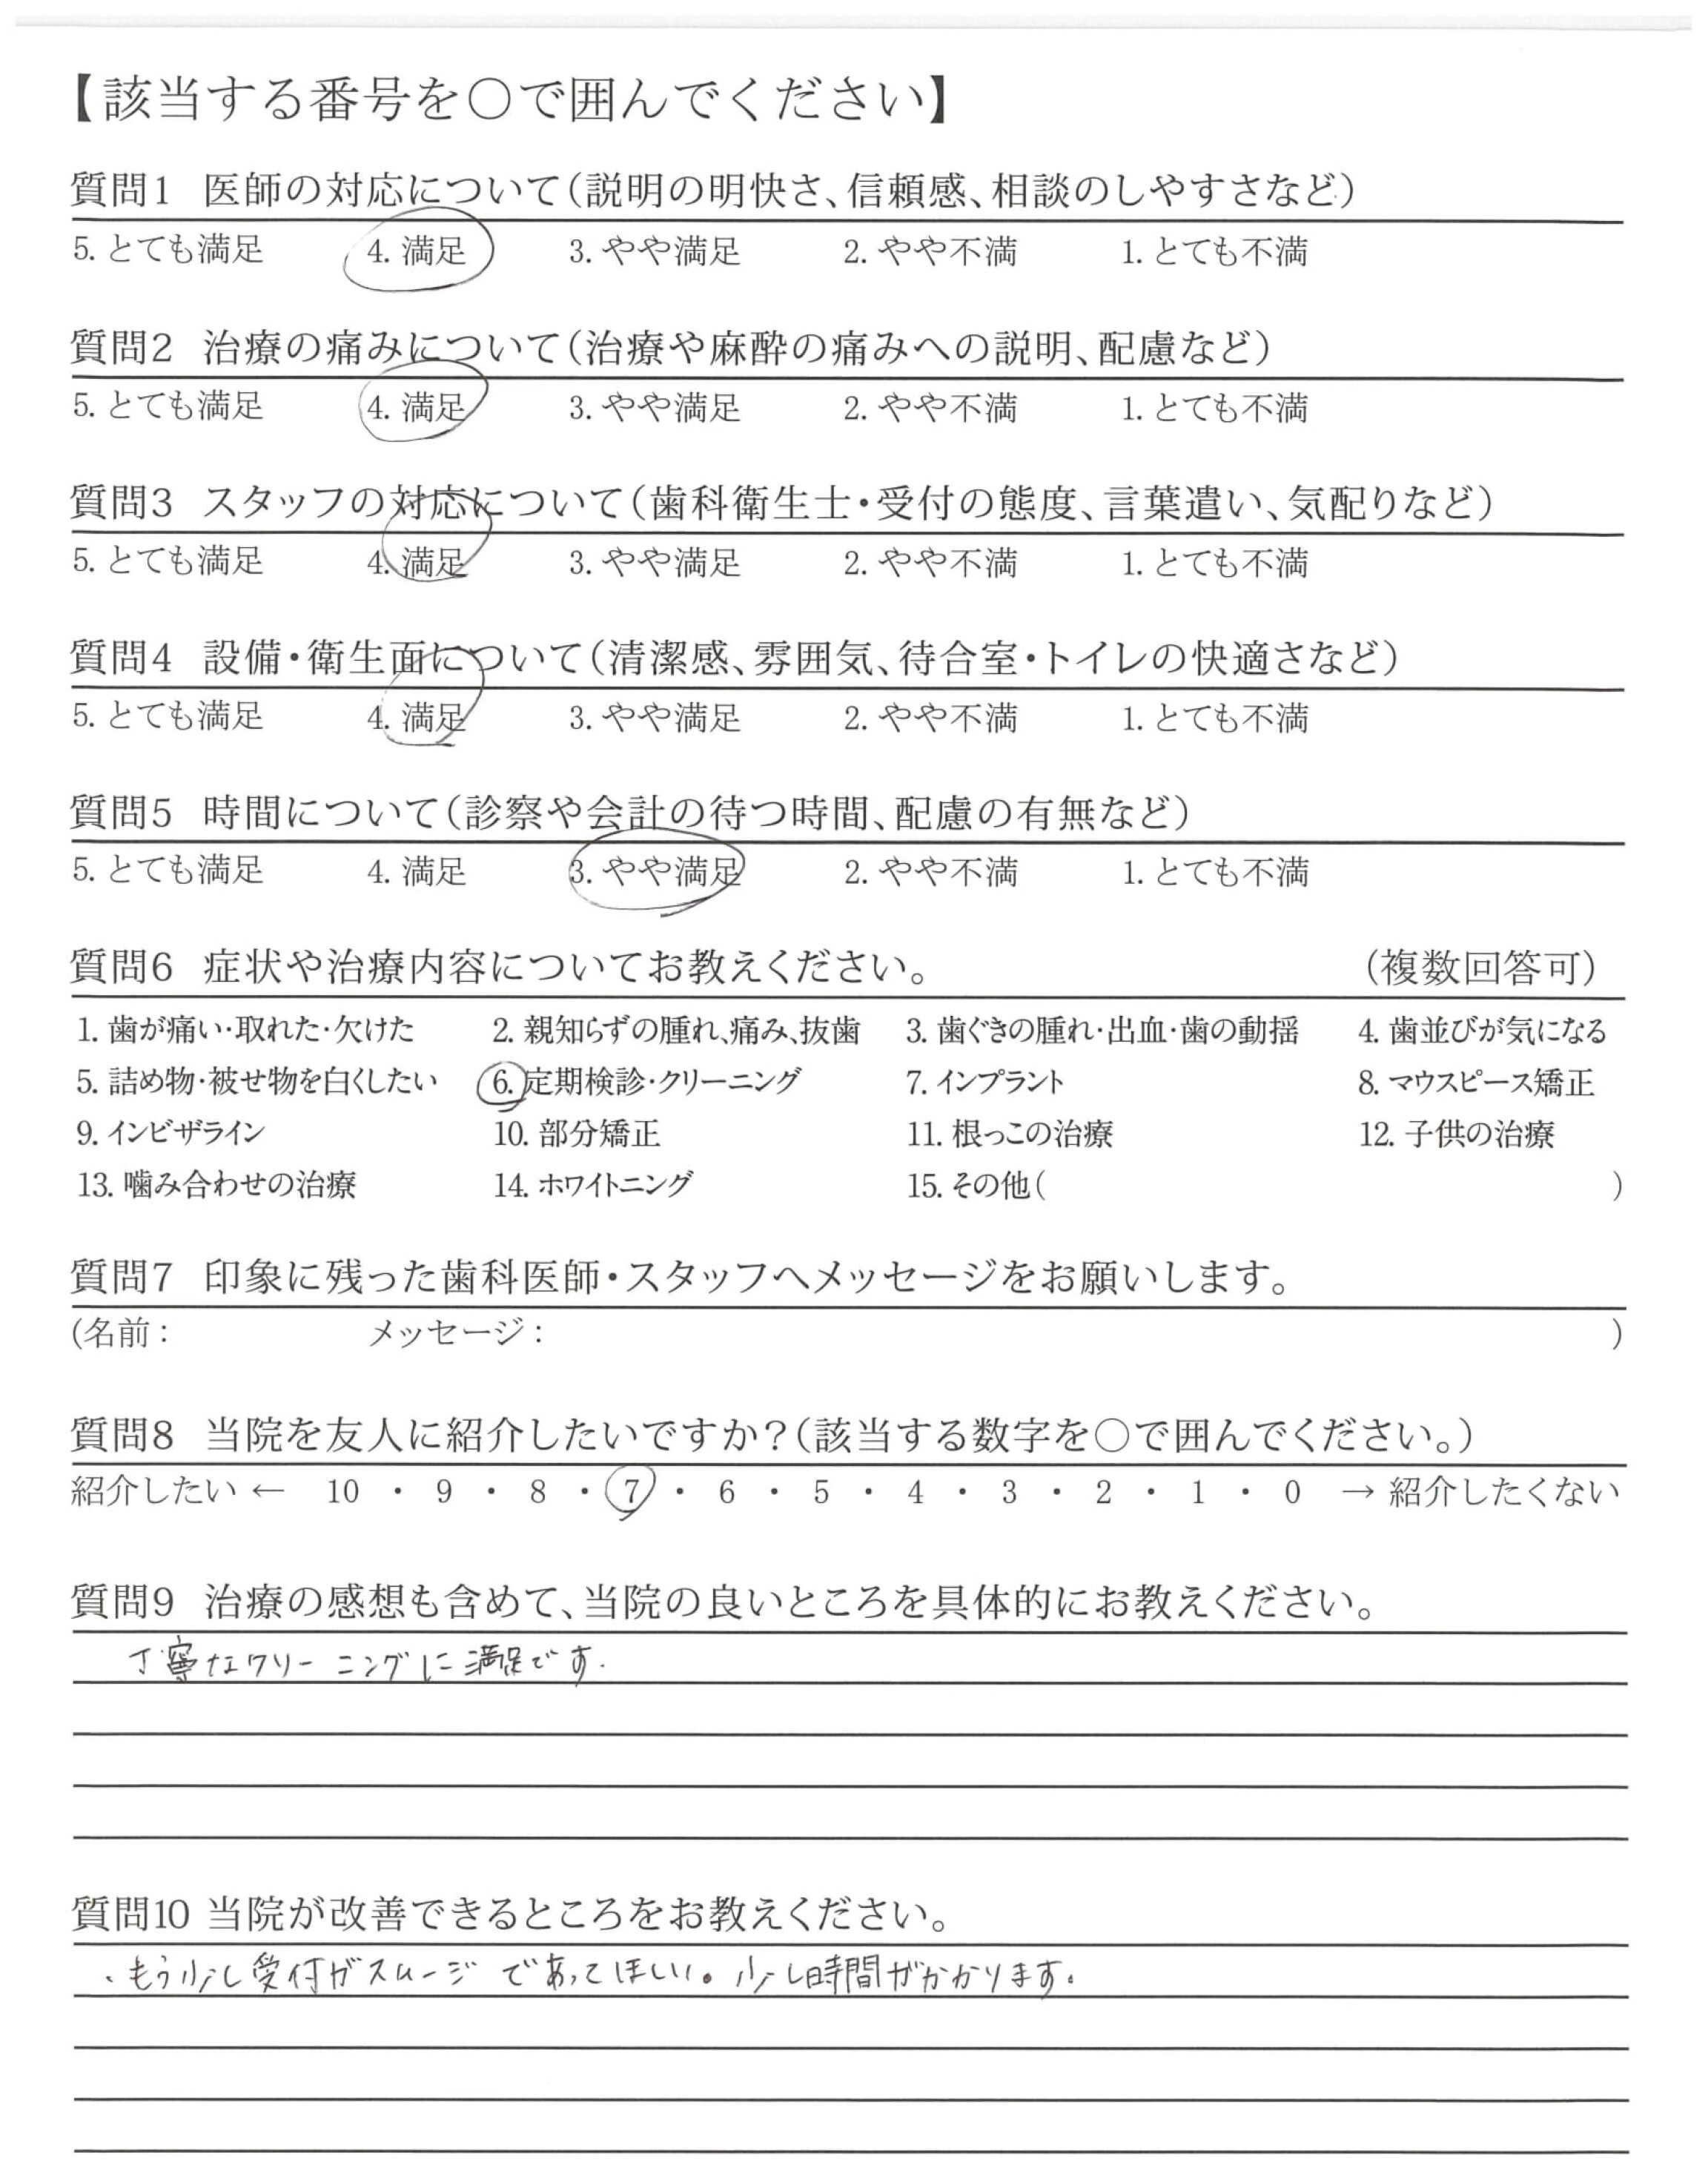 【該当する番号を○で囲んでください】
質問1 医師の対応について(説明の明快さ、信頼感、相談のしやすさなど)
5. とても満足 4. 満足 3. やや満足 2. やや不満 1. とても不満
質問2 治療の痛みについて(治療や麻酔の痛みへの説明、配慮など)
5. とても満足 4. 満足 3. やや満足 2. やや不満 1. とても不満
質問3 スタッフの対応について(歯科衛生士・受付の態度、言葉遣い、気配りなど)
5. とても満足 4. 満足 3. やや満足 2. やや不満 1. とても不満
質問4 設備・衛生面について(清潔感、雰囲気、待合室・トイレの快適さなど)
5. とても満足 4. 満足 3. やや満足 2. やや不満 1. とても不満
質問5 時間について(診察や会計の待つ時間、配慮の有無など)
5. とても満足 4. 満足 3. やや満足 2. やや不満 1. とても不満
質問6 症状や治療内容についてお教えください。 (複数回答可)
1. 歯が痛い・取れた・欠けた 2. 親知らずの腫れ、痛み、抜歯 3. 歯ぐきの腫れ・出血・歯の動揺 4. 歯並びが気になる
5. 詰め物・被せ物を白くしたい 6. 定期検診・クリーニング 7. インプラント 8. マウスピース矯正
9. インビザライン 10. 部分矯正 11. 根っこの治療 12. 子供の治療
13. 噛み合わせの治療 14. ホワイトニング 15. その他( )
質問7 印象に残った歯科医師・スタッフへメッセージをお願いします。
(名前: メッセージ: )
質問8 当院を友人に紹介したいですか?(該当する数字を○で囲んでください。)
紹介したい ← 10 ・ 9 ・ 8 ・ 7 ・ 6 ・ 5 ・ 4 ・ 3 ・ 2 ・ 1 ・ 0 → 紹介したくない
質問9 治療の感想も含めて、当院の良いところを具体的にお教えください。
丁寧なクリーニングに満足です.
質問10 当院が改善できるところをお教えください。
・もう少し受付がスムージであってほしい。少し時間がかかります。